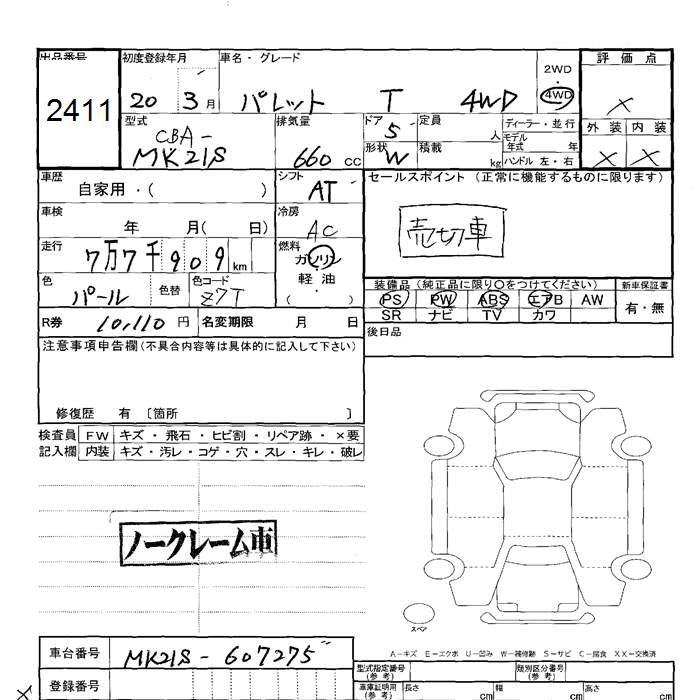 出品番号
2411
初度登録年月
20 3月
車名・グレード
パレット T 4WD
2WD
・
4WD
評価点
×
外装 内装
× ×
型式
CBA-
MK21S
排気量
660 CC
ドア 5
形状 W
定員 人
積載 kg
ディーラー・並行
モデル年式 年
ハンドル 左・右
車歴
自家用・( )
シフト
AT
セールスポイント (正常に機能するものに限ります)
売切車
車検
年 月( 日)
冷房
AC
走行
7万7千909km
燃料
ガソリン
軽油
( )
色
パール
色替
色コード
Z7T
装備品 (純正品に限り〇をつけてください)
PS PW ABS エアB AW
SR ナビ TV カワ
新車保証書
有・無
R券 10,110 円
名変期限 月 日
後日品
注意事項申告欄 (不具合内容等は具体的に記入して下さい)
修復歴 有 〔箇所 〕
検査員 FW キズ・飛石・ヒビ割・リペア跡・×要
記入欄 内装 キズ・汚レ・コゲ・穴・スレ・キレ・破レ
ノークレーム車
スペア
A-キズ E-エクボ U-凹み W-補修跡 S-サビ C-腐食 XX-交換済
車台番号 MK21S-607275
登録番号
型式指定番号
(参考)
類別区分番号
(参考)
車庫証明用
(参考)
長さ cm
幅 cm
高さ cm